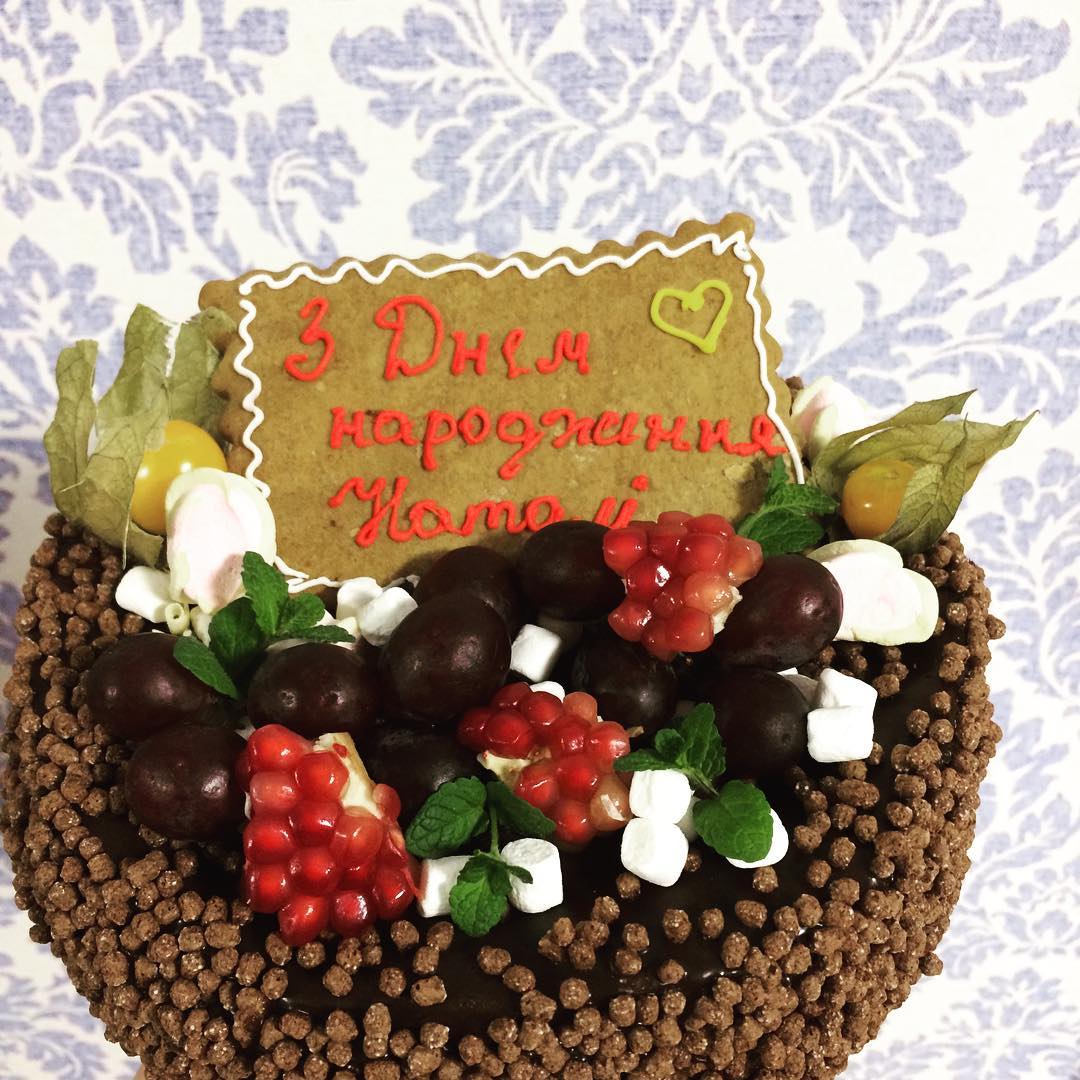 З Днем
народження
Наталі